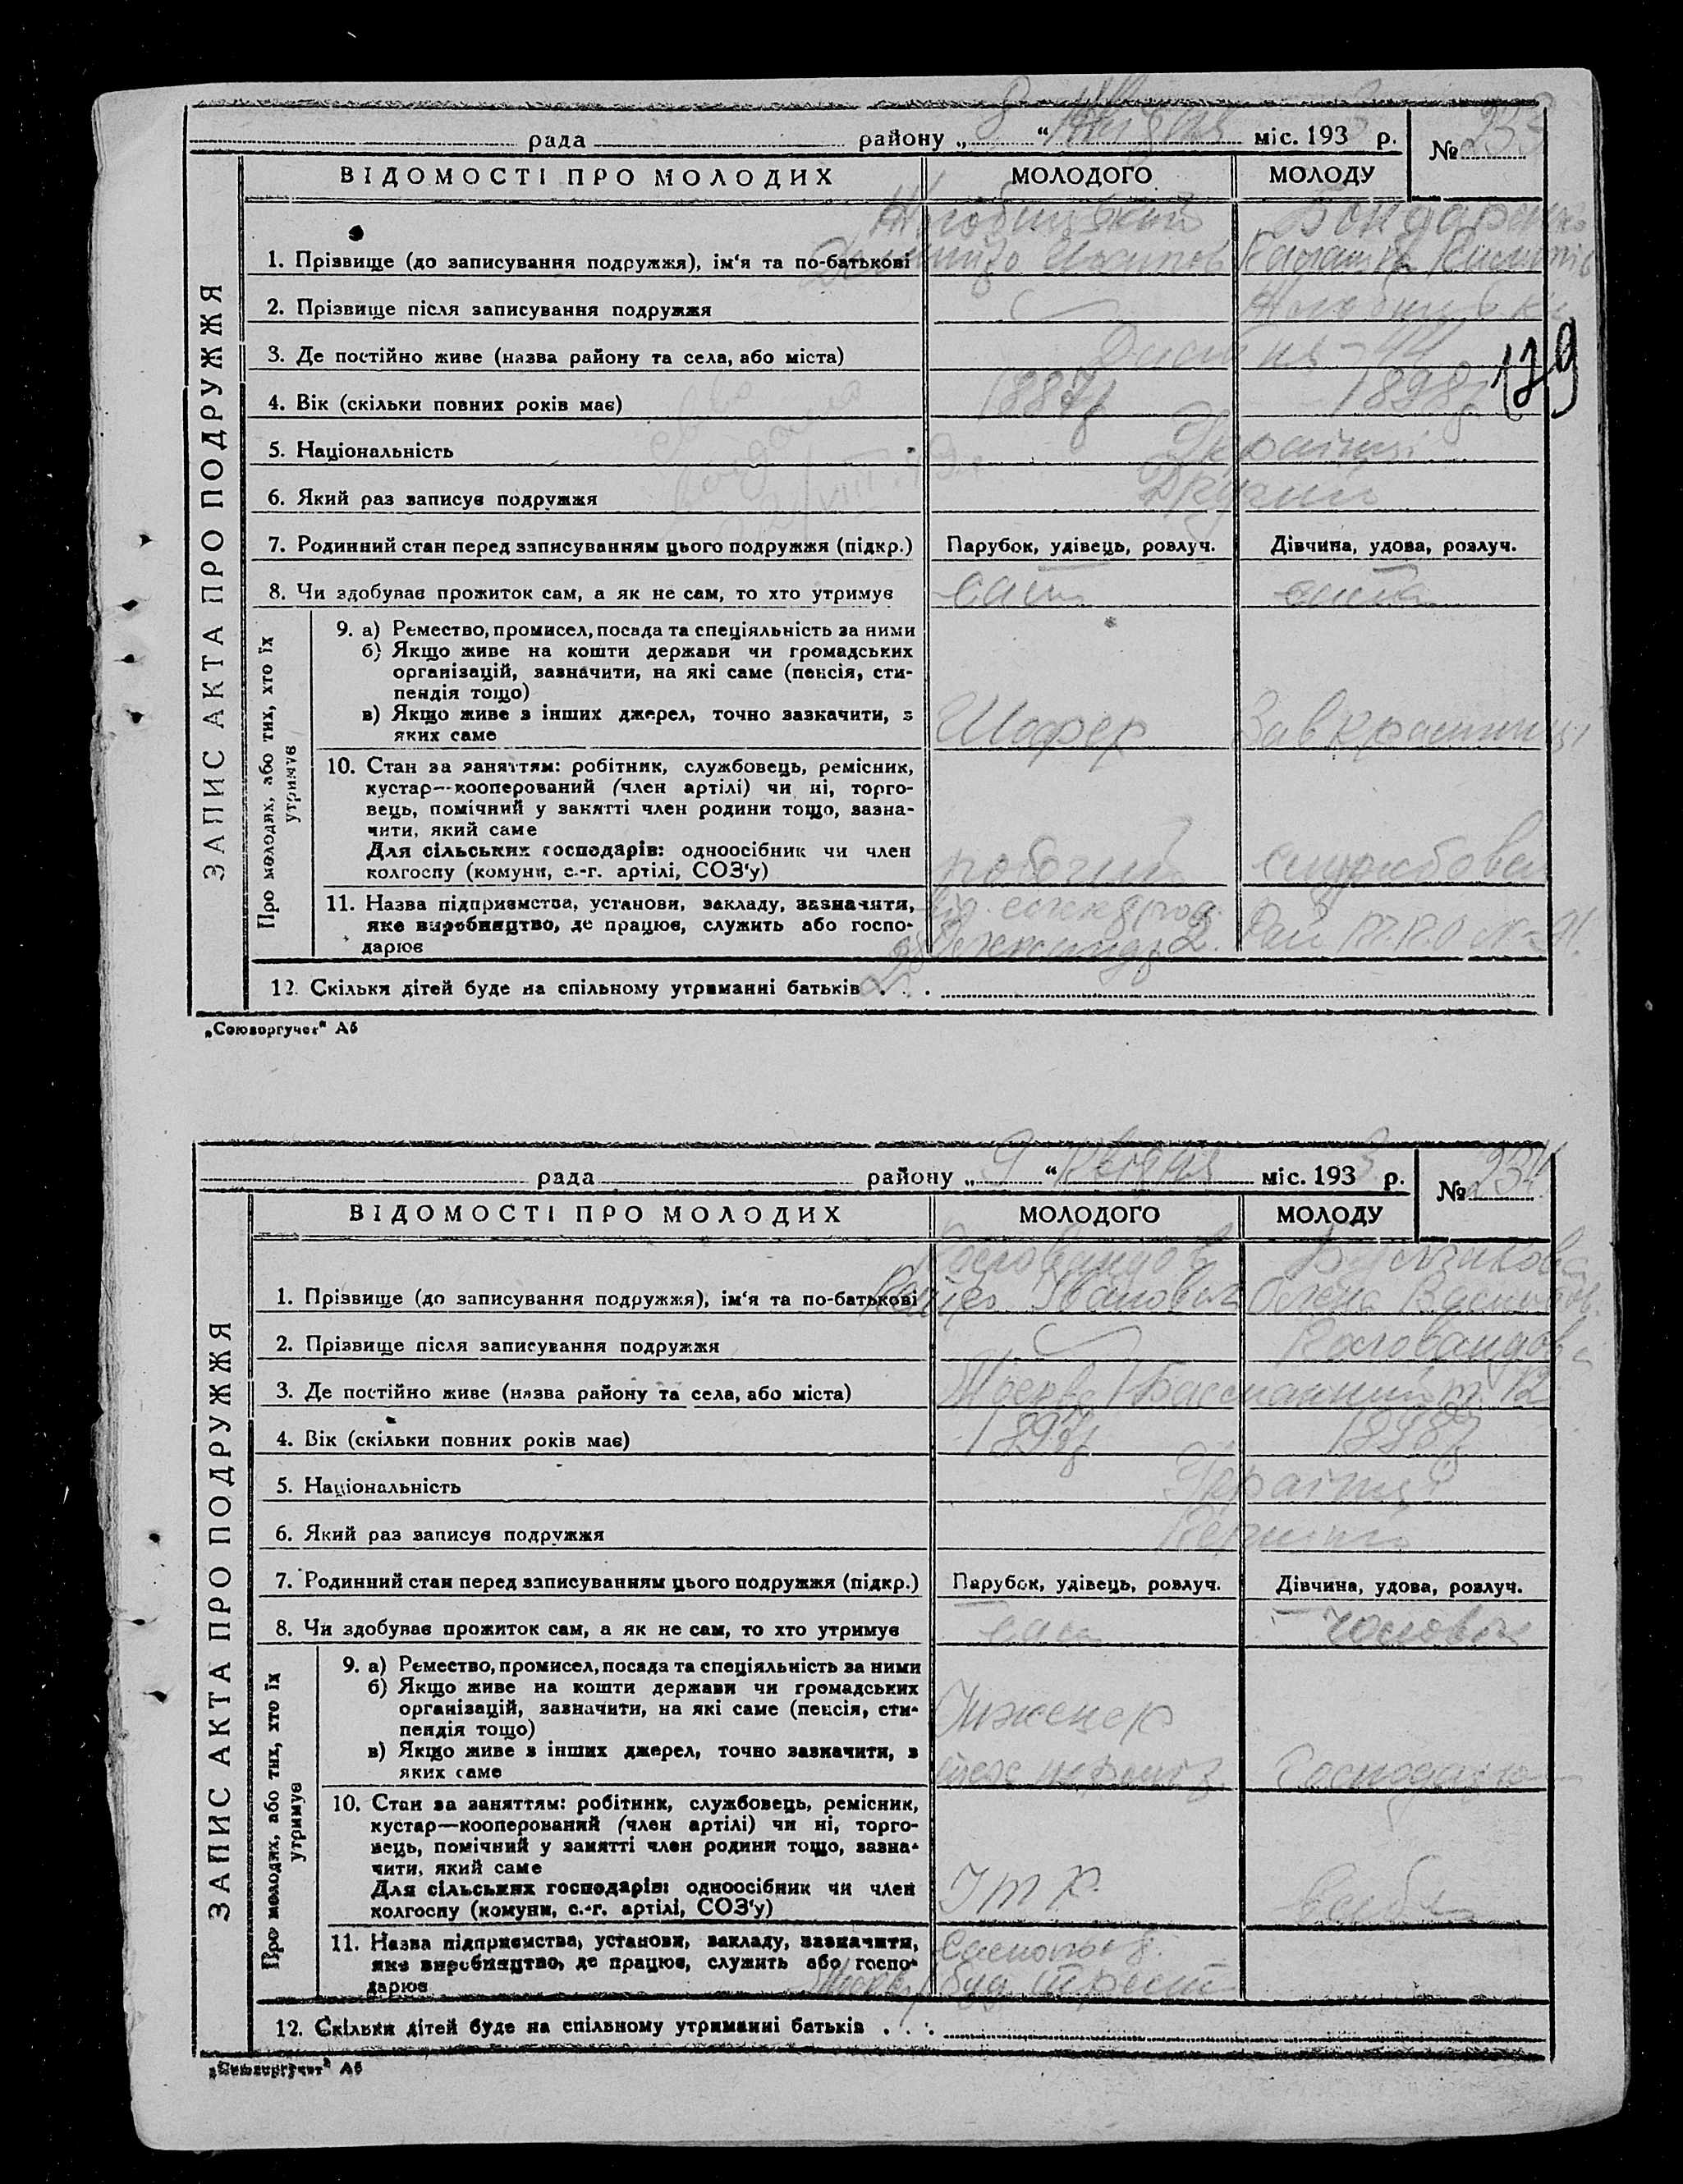 рада району „ 8 “ квітня міс. 193 3 р. № 233
ВІДОМОСТІ ПРО МОЛОДИХ МОЛОДОГО МОЛОДУ
ЗАПИС АКТА ПРО ПОДРУЖЖЯ
Бондаренко
1. Прізвище (до записування подружжя), ім‘я та по-батькові
2. Прізвище після записування подружжя
3. Де постійно живе (назва району та села, або міста)
179
4. Вік (скільки повних років має) 1887р 1898р
5. Національність Українці
6. Який раз записує подружжя Другий
7. Родинний стан перед записуванням цього подружжя (підкр.) Парубок, удівець, розлуч. Дівчина, удова, розлуч.
8. Чи здобуває прожиток сам, а як не сам, то хто утримує сам сама
Про молодих, або тих, хто їх утримує
9. а) Ремество, промисел, посада та спеціяльність за ними
б) Якщо живе на кошти держави чи громадських
організацій, зазначити, на які саме (пенсія, сти-
пендія тощо)
в) Якщо живе з інших джерел, точно зазначити, з
яких саме Шофер Зав крамниці
10. Стан за заняттям: робітник, службовець, ремісник,
кустар—кооперований (член артілі) чи ні, торго-
вець, помічний у занятті член родини тощо, зазна-
чити, який саме
Для сільських господарів: одноосібник чи член
колгоспу (комуни, с.-г. артілі, СОЗ‘у) робочий службовец
11. Назва підприємства, установи, закладу, зазначити,
яке виробництво, де працює, служить або госпо-
дарює
12. Скільки дітей буде на спільному утриманні батьків . . .
„Союзоргучет“ А5
рада району „ 9 “ квітня міс. 193 3 р. № 234
ВІДОМОСТІ ПРО МОЛОДИХ МОЛОДОГО МОЛОДУ
ЗАПИС АКТА ПРО ПОДРУЖЖЯ
1. Прізвище (до записування подружжя), ім‘я та по-батькові Іванович Олена
2. Прізвище після записування подружжя
3. Де постійно живе (назва району та села, або міста) Москва
4. Вік (скільки повних років має) 1897р
5. Національність Українці
6. Який раз записує подружжя Перший
7. Родинний стан перед записуванням цього подружжя (підкр.) Парубок, удівець, розлуч. Дівчина, удова, розлуч.
8. Чи здобуває прожиток сам, а як не сам, то хто утримує сам чоловік
Про молодих, або тих, хто їх утримує
9. а) Ремество, промисел, посада та спеціяльність за ними
б) Якщо живе на кошти держави чи громадських
організацій, зазначити, на які саме (пенсія, сти-
пендія тощо) Инженер
в) Якщо живе з інших джерел, точно зазначити, з
яких саме
10. Стан за заняттям: робітник, службовець, ремісник,
кустар—кооперований (член артілі) чи ні, торго-
вець, помічний у занятті член родини тощо, зазна-
чити, який саме
Для сільських господарів: одноосібник чи член
колгоспу (комуни, с.-г. артілі, СОЗ‘у) ІТР
11. Назва підприємства, установи, закладу, зазначити,
яке виробництво, де працює, служить або госпо-
дарює буд. трест
12. Скільки дітей буде на спільному утриманні батьків . . .
„Союзоргучет“ А5